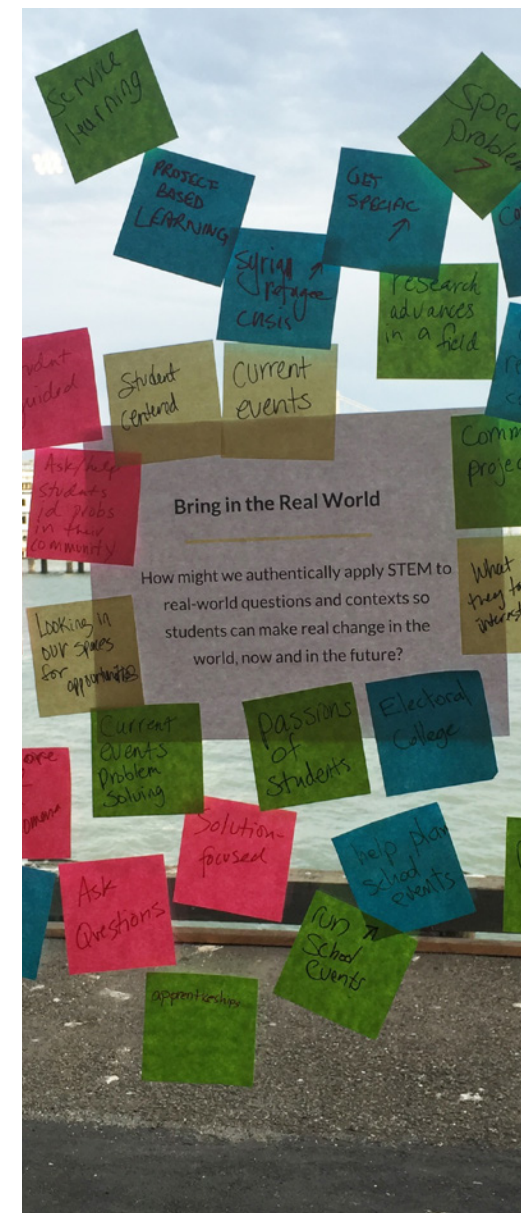 Service
learning
PROJECT
BASED
LEARNING
GET
SPECIFIC
Problem
Syrian
refugee
crisis
research
advances
in a field
Student
centered
Current
events
Ask/help
students
id probs
in their
community
Bring in the Real World
How might we authentically apply STEM to
real-world questions and contexts so
students can make real change in the
world, now and in the future?
What
they
Looking in
our spaces
for opportunities
Current
events
Problem
Solving
passions
of
Students
Electoral
College
Solution-
focused
help plan
school
events
Ask
Questions
run
School
events
apprenticeships